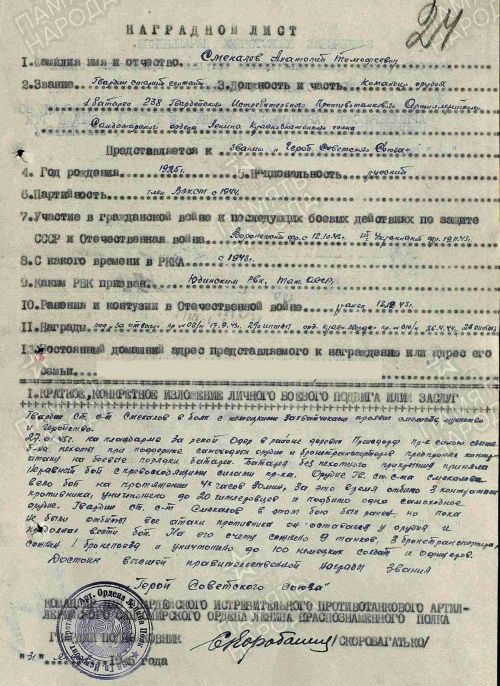 24
НАГРАДНОЙ ЛИСТ
1.Фамилия имя и отчество. Смекалов Анатолий Тимофеевич
2.Звание. Гвардии старший сержант 3.Должность и часть. Командир орудия
1 батареи 238 Гвардейского Истребительного Противотанкового Артиллерийского
ордена Ленина Краснознаменного полка
Представляется к званию "Герой Советского Союза"
4. Год рождения 1925г. 5.Национальность русский
6.Партийность член ВЛКСМ с 1944
7.Участие в гражданской войне и последующих боевых действиях по защите
СССР и Отечественная война. Воронежский фр. с 12.10.43.
8.С какого времени в РККА с 1943г.
9.Каким РВК призван. Юдинским РВК, Тат. АССР,
10.Ранения и контузии в Отечественной войне ранен
11.Награды. "За отвагу" орд.
12.Постоянный домашний адрес представляемого к награждению или адрес его
семьи...
I.КРАТКОЕ,КОНКРЕТНОЕ ИЗЛОЖЕНИЕ ЛИЧНОГО БОЕВОГО ПОДВИГА ИЛИ ЗАСЛУГ
Гвардии ст. с-т Смекалов в боях с немецкими захватчиками проявил мужество
и геройство.
27.01.45г. на плацдарме за рекой Одер в районе деревни пр-к силою свыше
б-на пехоты при поддержке самоходных орудий и бронетранспортеров предпринял контр
атаку на боевые порядки батареи. Батарея без пехотного прикрытия приняла
неравный бой с превосходящими силами пр-ка. Орудие гв. ст. с-та Смекалова
вело бой на протяжении 4х часов. За это время отбито 3 контратаки
противника, уничтожено до 20 гитлеровцев и подбито одно самоходное
орудие. Гвардии ст. с-т Смекалов в этом бою был ранен, но пока
не были отбиты все атаки противника он оставался у орудия и
продолжал вести бой. На его счету сожжено 9 танков, 3 бронетранспортера,
1 и уничтожено до 100 немецких солдат и офицеров.
Достоин высшей правительственной награды Звания
"Герой Советского Союза"
КОМАНДИР ГВАРДЕЙСКОГО ИСТРЕБИТЕЛЬНОГО ПРОТИВОТАНКОВОГО АРТИЛ-
ОРДЕНА ЛЕНИНА КРАСНОЗНАМЕННОГО ПОЛКА
ГВАРДИИ ПОДПОЛКОВНИК /СКОРОБАГАТЬКО/
"31" 1945 года